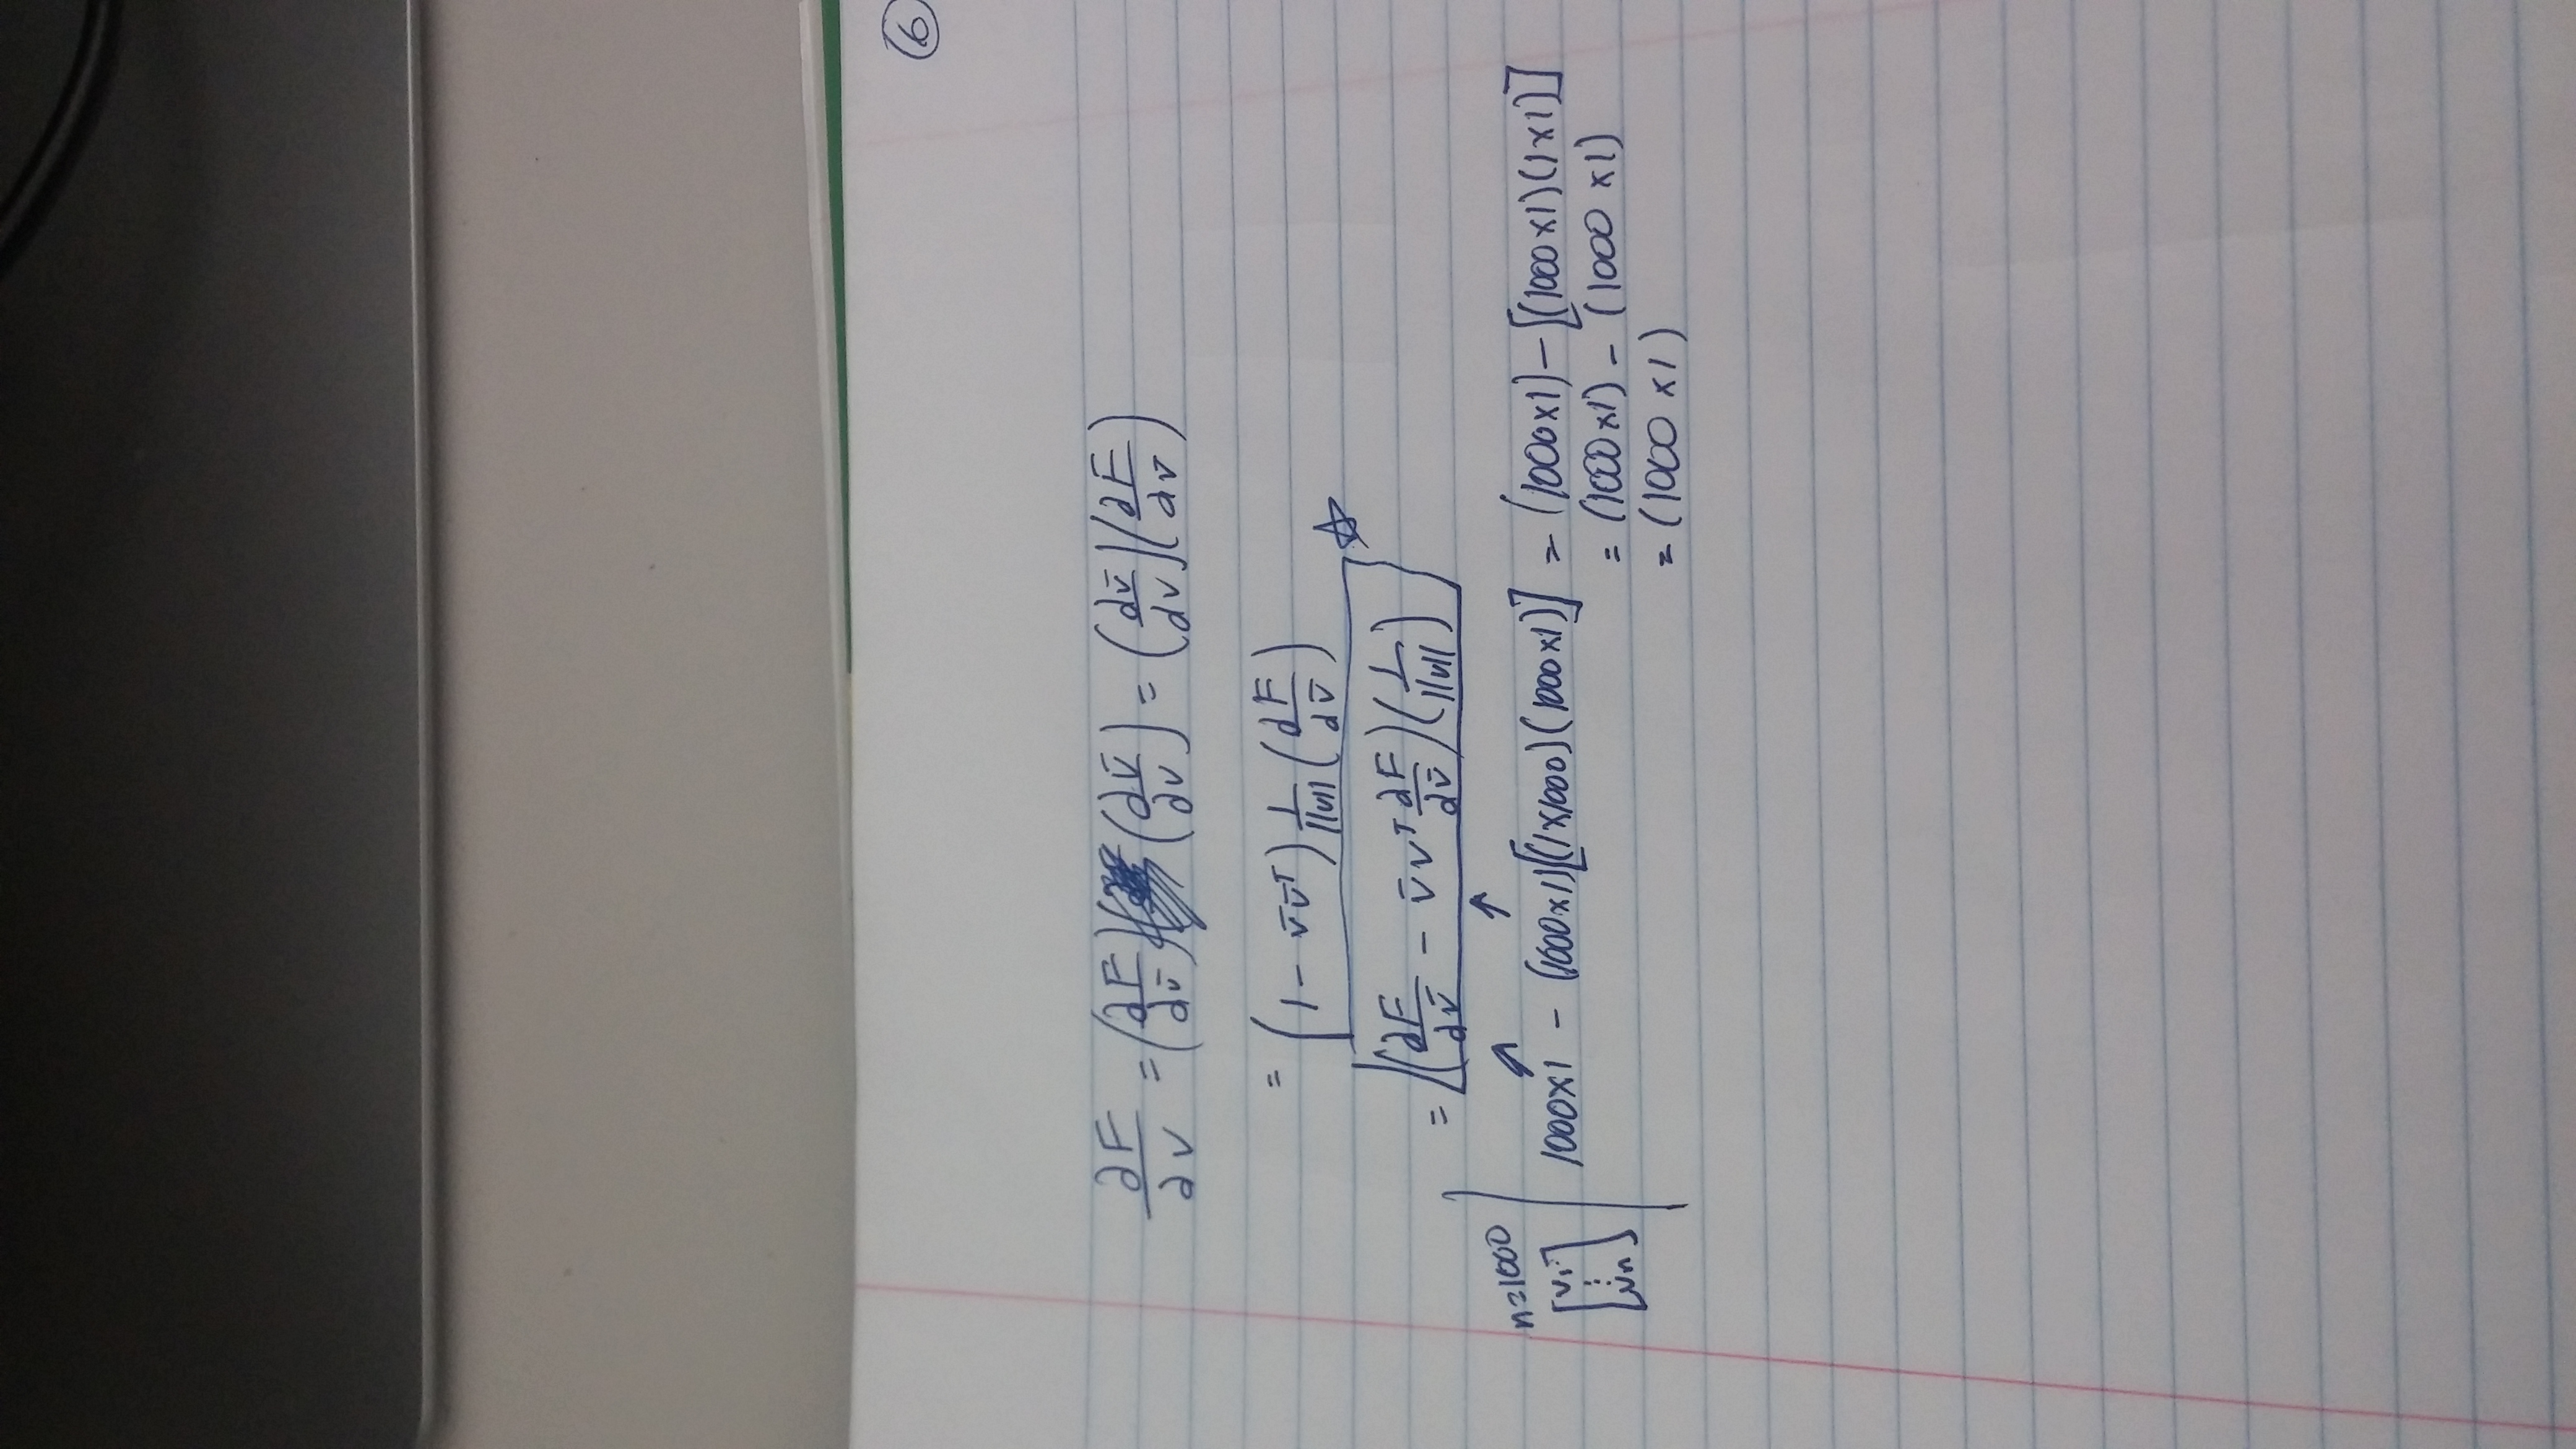 6
∂F/∂v = (∂F/∂v̄) (∂v̄/∂v) = (∂v̄/∂v)(∂F/∂v̄)
= (1 - v̄v̄ᵀ) 1/||v|| (∂F/∂v̄)
= (∂F/∂v̄ - v̄vᵀ ∂F/∂v̄)(1/||v||) ☆
n=1000
[v₁ ⋮ vn]
1000×1 - (1000×1)[(1×1000)(1000×1)] = (1000×1)-[(1000×1)(1×1)]
= (1000×1) - (1000×1)
= (1000×1)